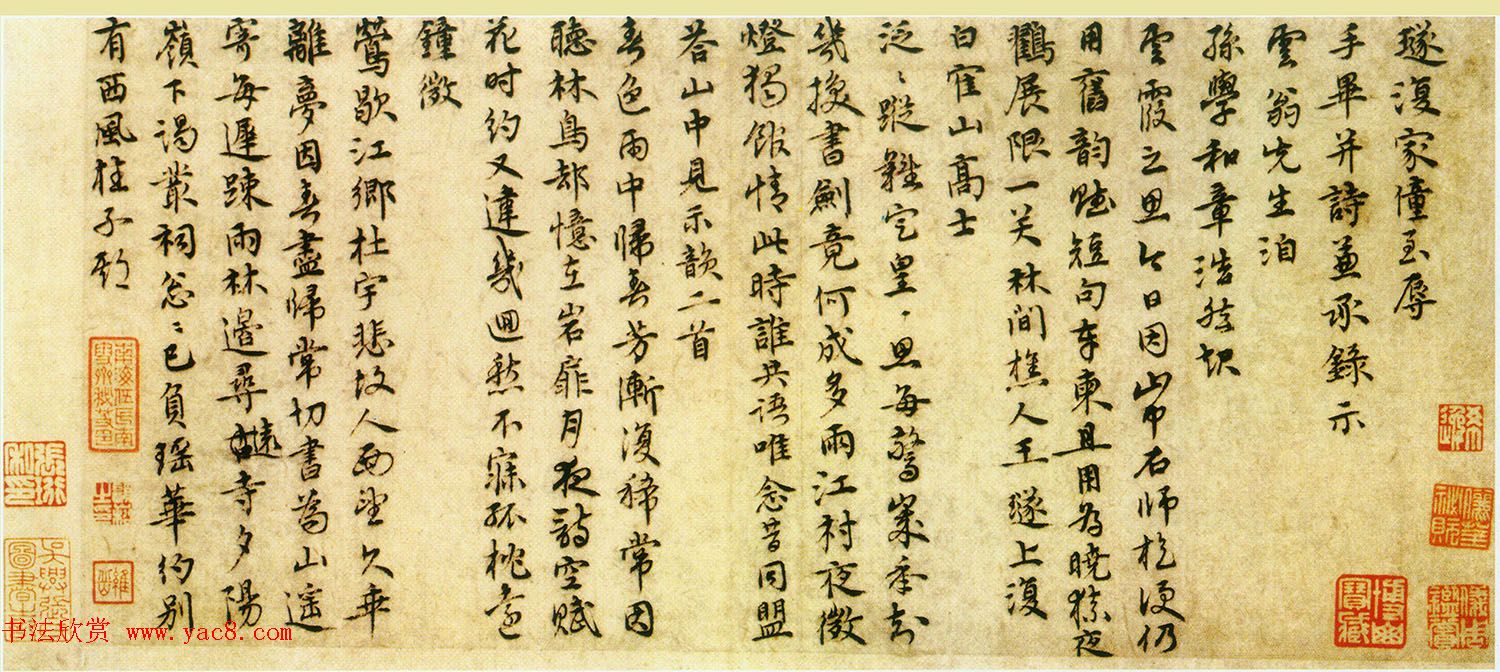 璲復家僮至辱
手畢并詩兼承錄示
雲翁先生洎
孫學和章浩然起
雲霞之思今日因山中石師杖便仍
用舊韵賦短句奉柬且用為曉猿夜
鶴展限一笑林間樵人王璲上復
白隺山高士
泛〻蹤難定皇〻思每驚歲季知
幾換書劍竟何成多雨江村夜微
燈獨館情此時誰共語唯念昔同盟
荅山中見示韻二首
春色雨中歸春芳漸復稀常因
聽林鳥却憶在岩扉月夜詩空賦
花時約又違幾迴愁不寐孤枕遠
鐘微
鶯歇江鄉杜宇悲故人西望久乖
離夢因春盡歸常切書為山遥
寄每遲踈雨林邊尋古寺夕陽
嶺下謁叢祠怱〻已負瑤華約別
有西風桂子期
书法欣赏 www.yac8.com